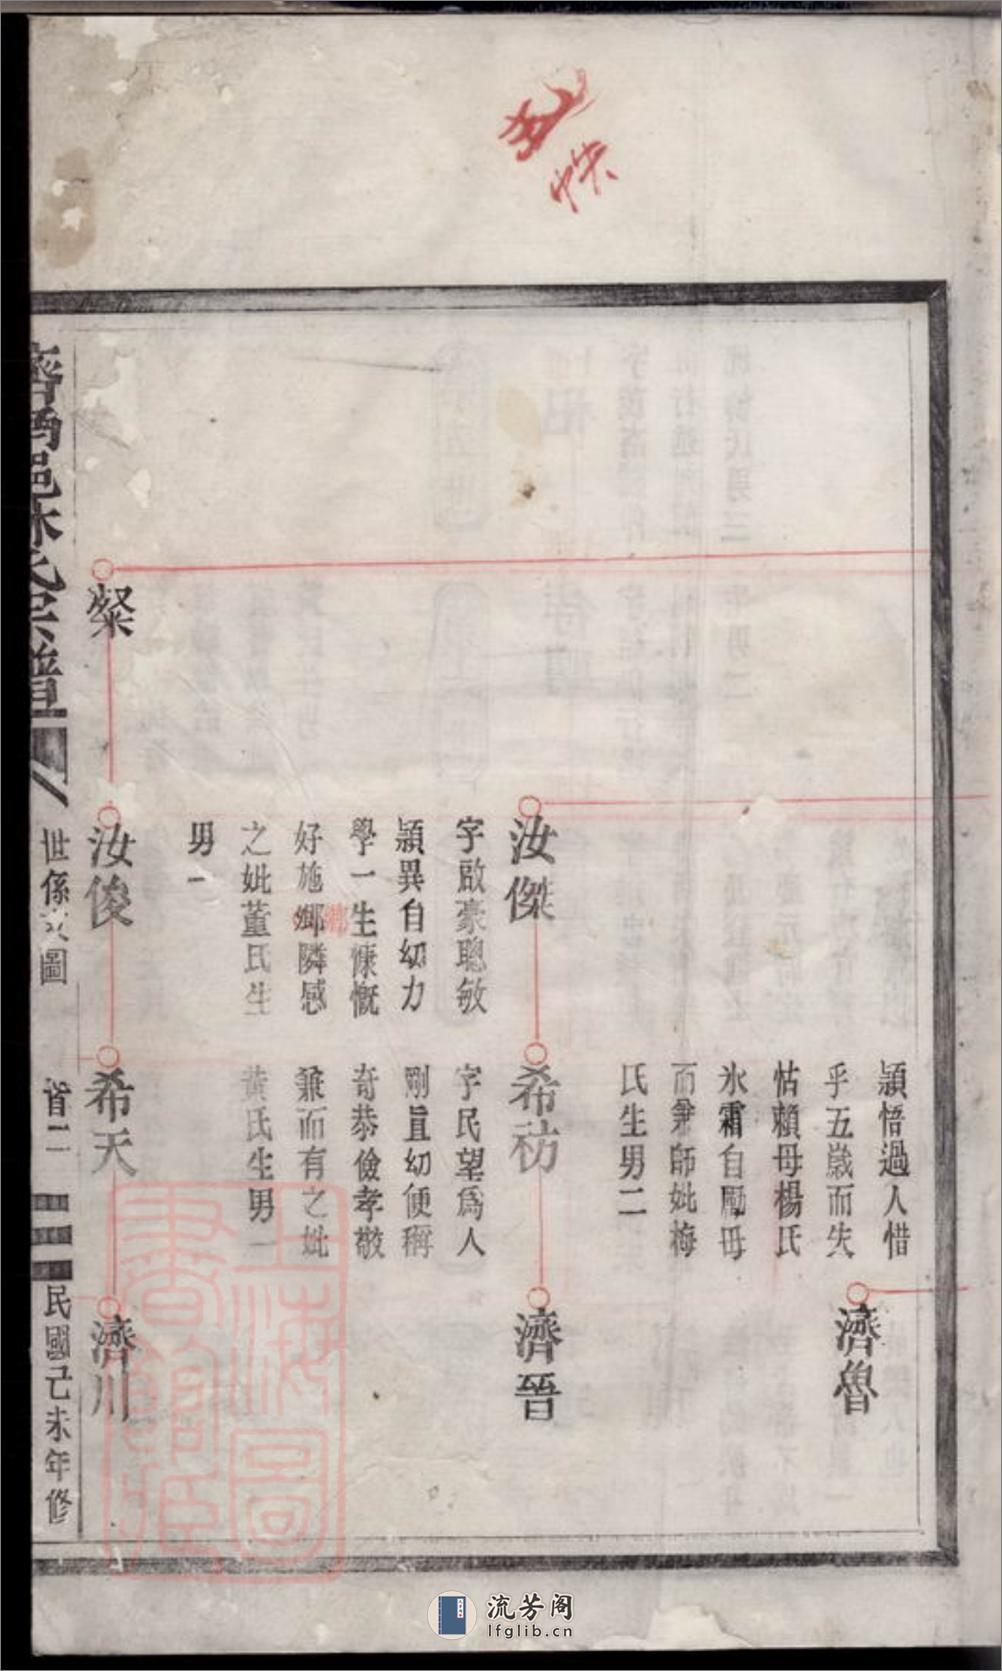 穎悟過人惜
乎五歲而失
怙賴母楊氏
氷霜自勵母
而兼師妣梅
氏生男二
濟魯
汝傑
字啟豪聰敏
穎異自幼力
學一生慷慨
好施鄉隣感
之妣董氏生
男一
希祊
字民望為人
剛直幼便稱
奇恭儉孝敬
兼而有之妣
黃氏生男一
濟晉
粲
汝俊
希天
濟川
邑林氏宗譜
世係次圖
首二
民國己未年修
上海圖書館藏
流芳阁
lfglib.cn